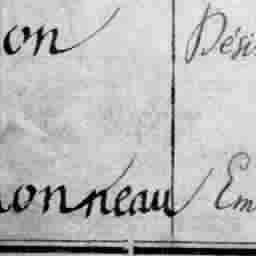 on Dési
onneau Em